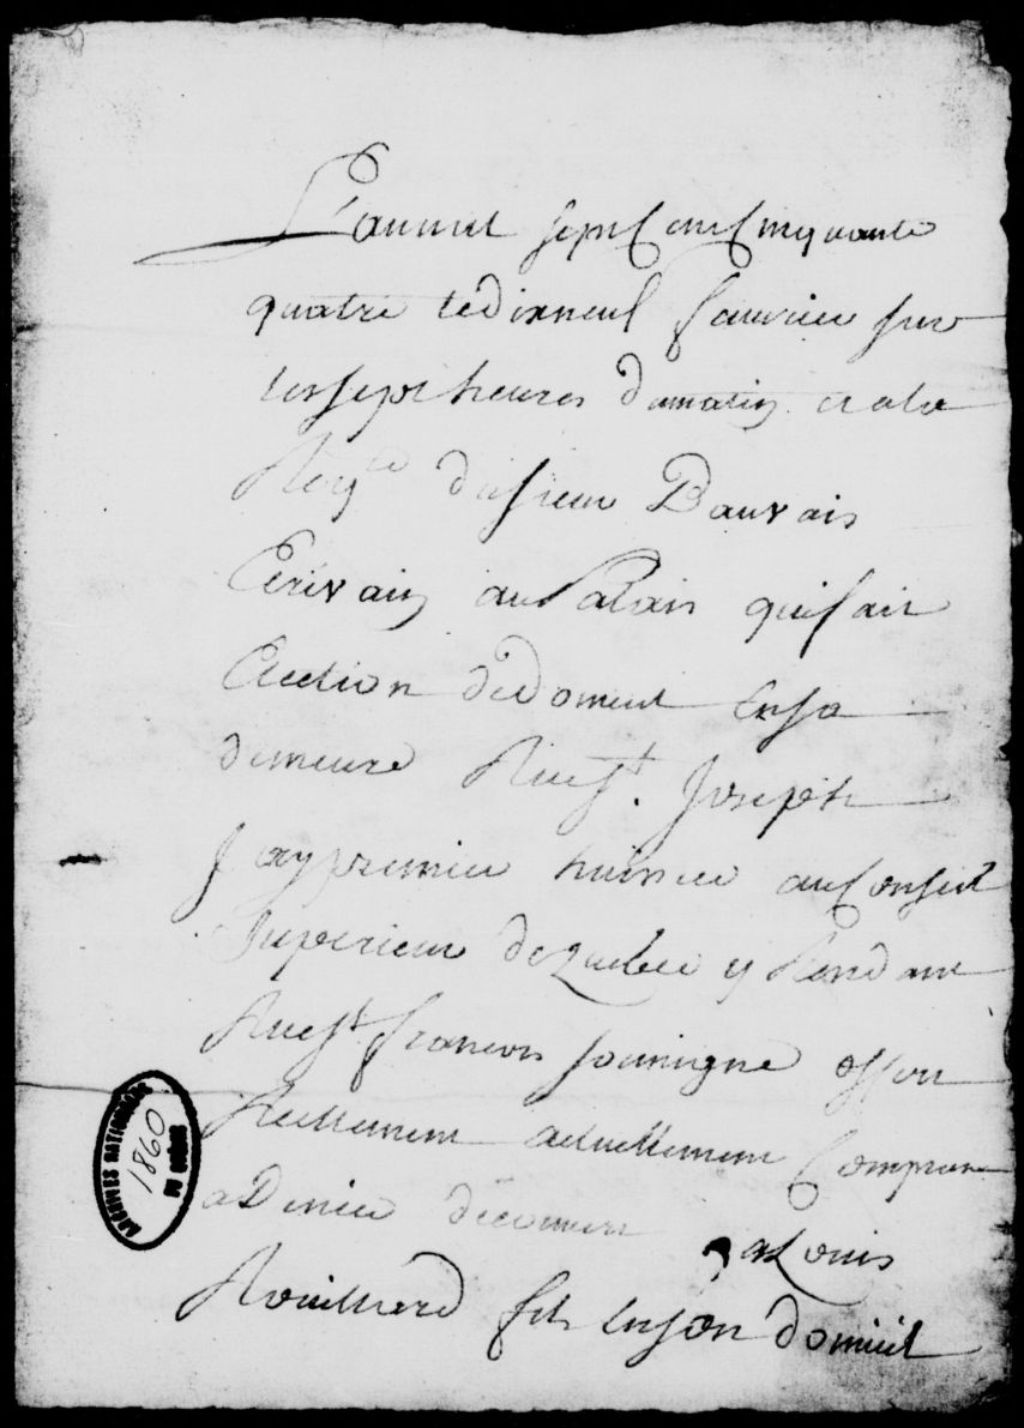 L'an mil sept cent Cinquante
quatre le dixneuf Janvier sur
les sept heures du matin et a la
Reqte du sieur Bauvais
Ecrivain au Palais qui fait
Election de domicil En sa
demeure Rue St. Joseph
J'ay premier huissier au Conseil
Superieur de Quebec y Residant
Rue St francois soussigne
Reellement actuellement Comptant
a Denier decouvert a Louis
Rouilliard fils En son domicil
ARCHIVES NATIONALES
1860
DU QUÉBEC